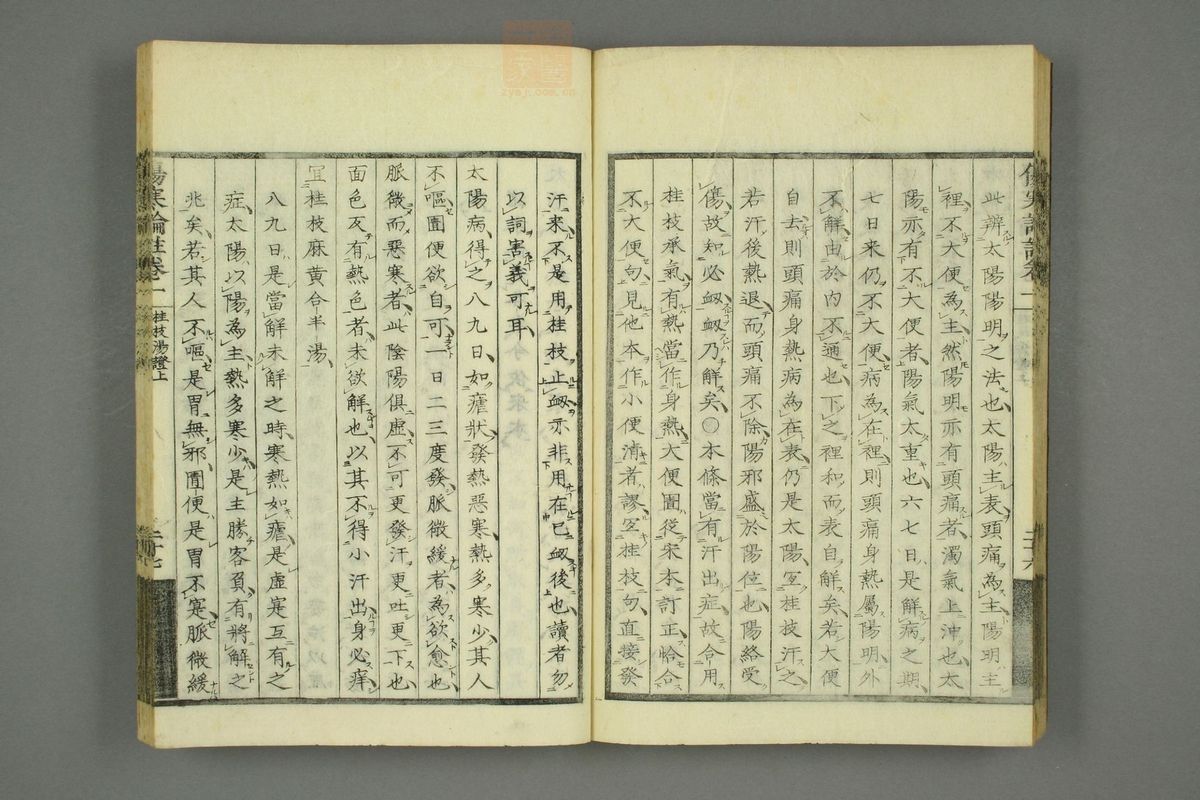 此辨太陽陽明之法也太陽主表頭痛為主陽明主
裡不大便為主然陽明亦有頭痛者濁氣上沖也太
陽亦有不大便者陽氣太重也六七日是解病之期
七日来仍不大便病為在裡則頭痛身熱屬陽明外
不解由於内不通也下之裡和而表自解矣若大便
自去則頭痛身熱病為在表仍是太陽宜桂枝汗之
若汗後熱退而頭痛不除陽邪盛於陽位也陽絡受
傷故知必衂衂乃解矣〇本條當有汗出症故合用
桂枝承氣有熱當作身熱大便圊從宋本訂正恰合
不大便句見他本作小便清者謬宜桂枝句直接發
汗来不是用桂枝止衂亦非用在已衂後也讀者勿
以詞害義可耳
太陽病得之八九日如瘧狀發熱惡寒熱多寒少其人
不嘔圊便欲自可一日二三度發脈微緩者為欲愈也
脈微而惡寒者此陰陽俱虛不可更發汗更吐更下也
面色反有熱色者未欲解也以其不得小汗出身必痒
宜桂枝麻黄合半湯
八九日是當解未解之時寒熱如瘧是虛寔互有之
症太陽以陽為主熱多寒少是主勝客負有將解之
兆矣若其人不嘔是胃無邪圊便是胃不寔脈微緩
傷寒論註卷一
桂枝湯證上
二十七
zysj.com.cn